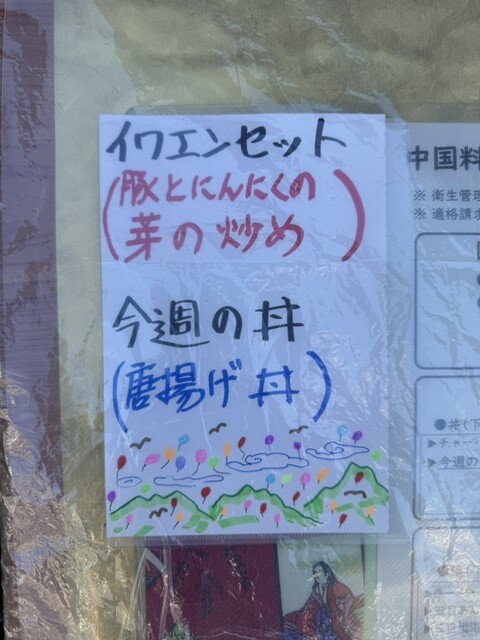 イワエンセット
(豚とにんにくの
芽の炒め)
今週の丼
(唐揚げ丼)
中国料
※ 衛生管理
※ 適格請求
●丼(下
▶チャーシ
▶今週の